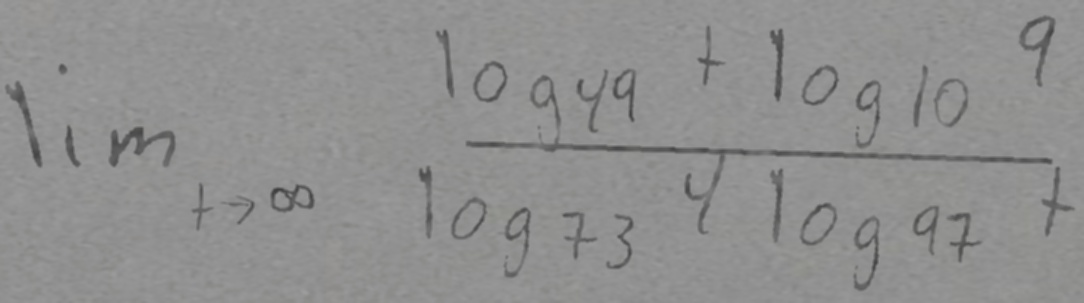 \lim_{t \to \infty} \frac{\log_{49} t \log_{10} 9}{\log_{73} 4 \log_{97} t}